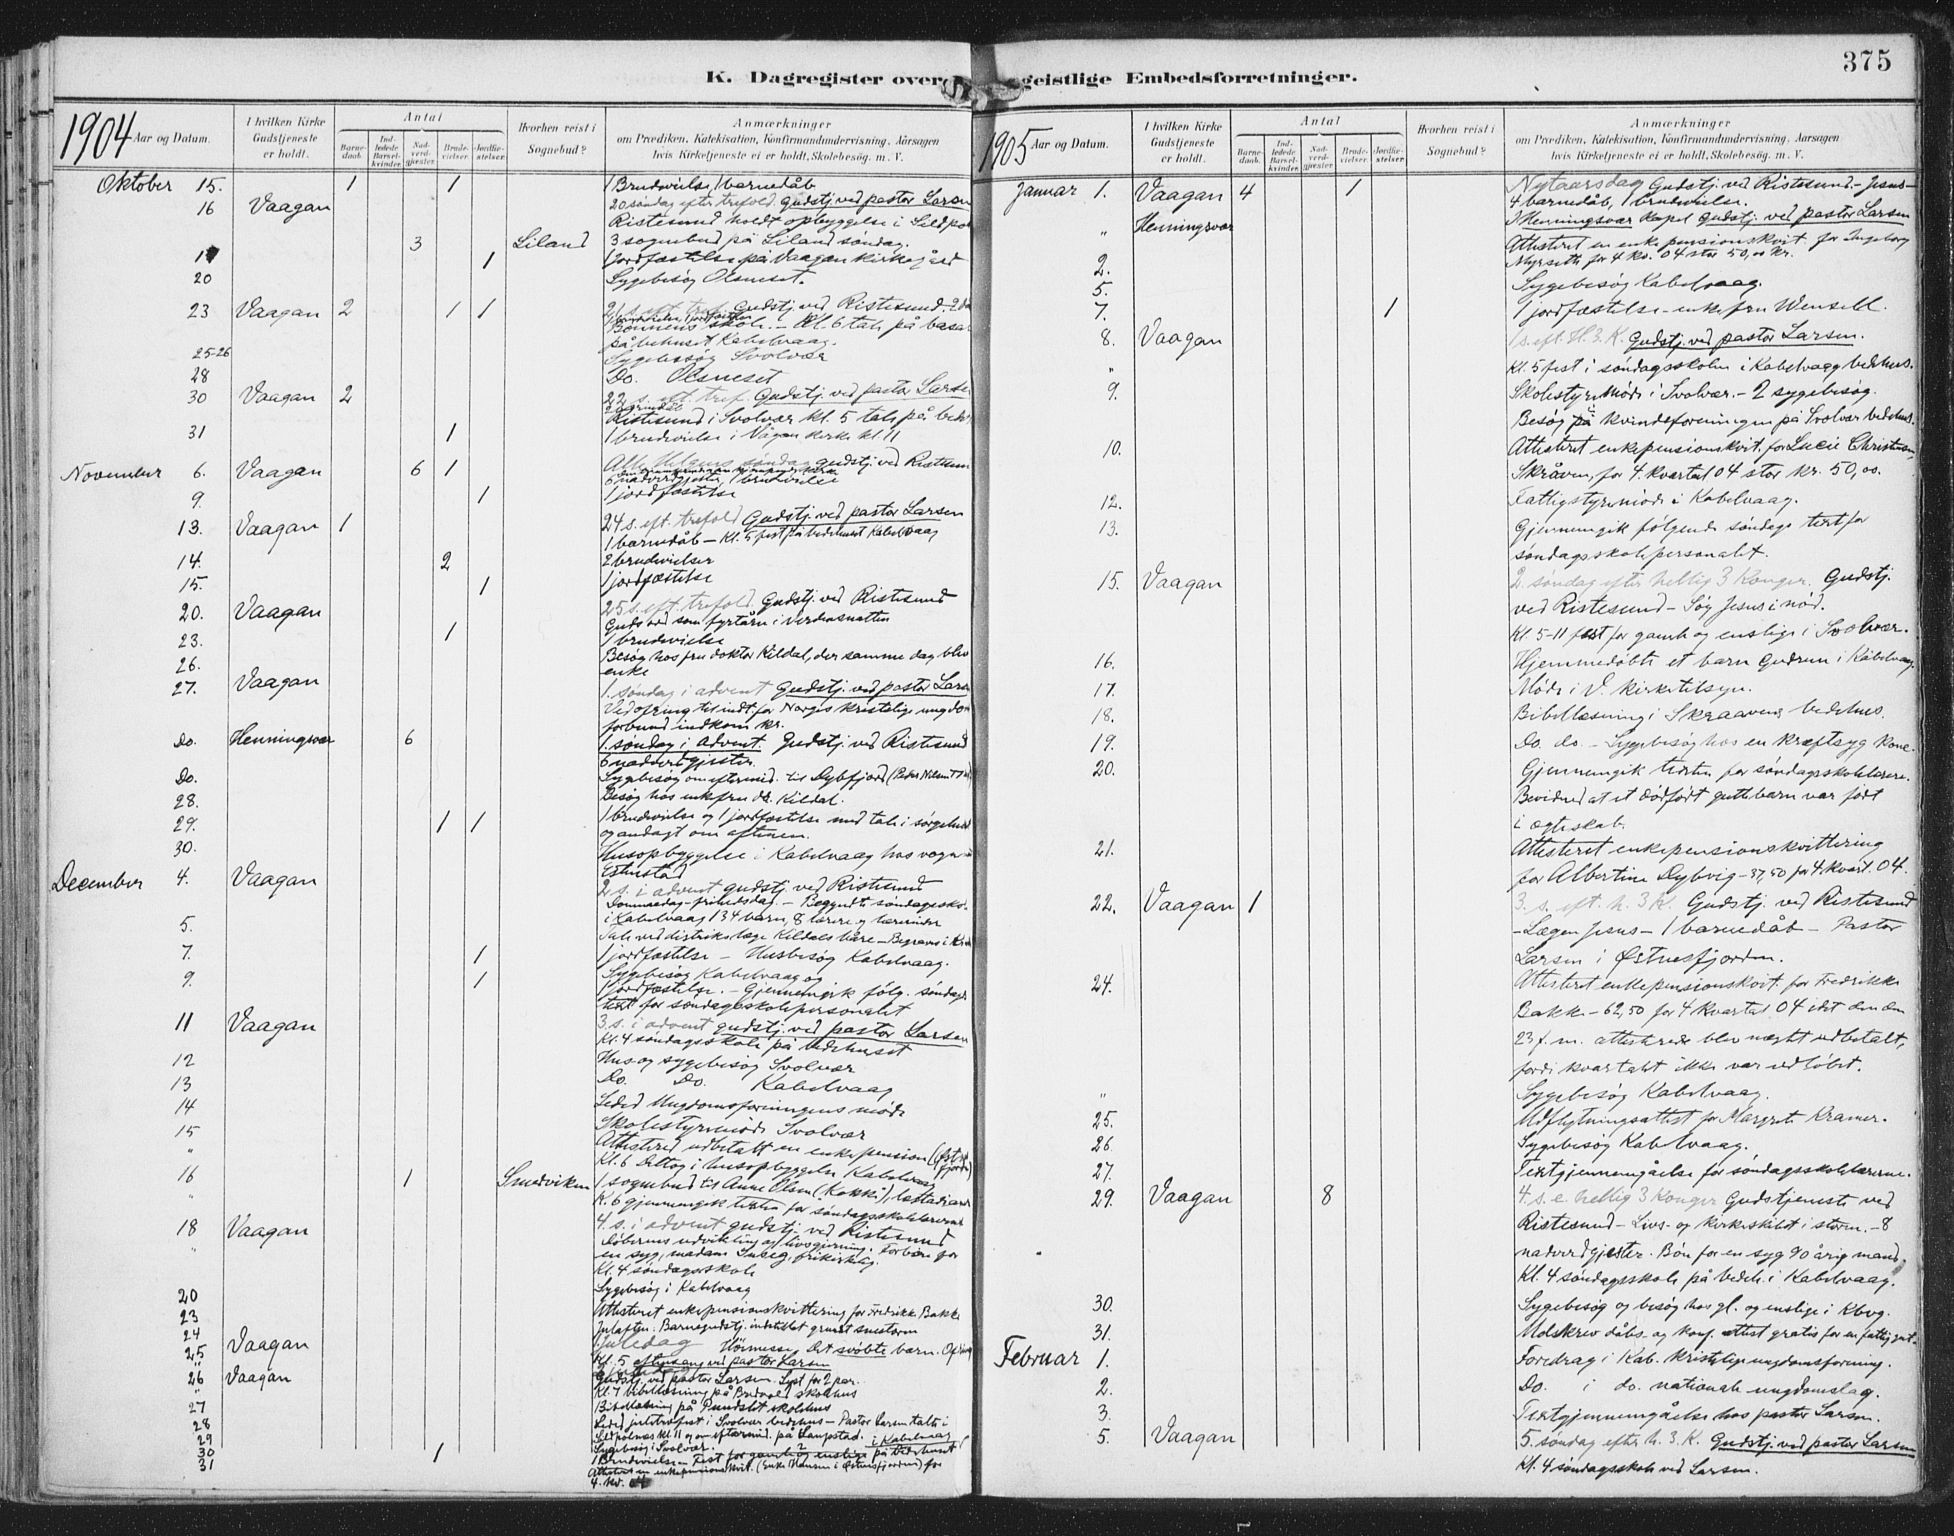 375
K. Dagregister over geistlige Embedsforretninger.
1904 Aar og Datum.
I hvilken Kirke Gudstjeneste er holdt.
Antal
Barne-daab.
Ind-ledede Barsel-kvinder.
Nad-verd-gjester.
Brude-vielser.
Jordfæ-stelser.
Hvorhen reist i Sognebud?
Anmærkninger
om Prædiken, Katekisation, Konfirmandundervisning, Aarsagen
hvis Kirketjeneste ei er holdt, Skolebesøg. m. V.
Oktober 15. 1 1 1 Brudevielse, 1 barnedåb
16 Vaagan 20 søndag efter trefold. Gudstj. ved pastor Larsen
Ristesund holdt opbyggelse i
3 Liland 3 sognebud på Liland søndag.
1 1 jordfæstelse på Vaagan kirkegård
20 Sygebesøg Olsneset.
23 Vaagan 2 1 1 21 s. eft. tref. Gudstj. ved Ristesund.
Børnenes skole. – Kl. 6 tale på
på behuset Kabelvaag.
25-26 Sygebesøg Svolvær
28 Do. Olsneset
30 Vaagan 2 22 s. eft. tref. Gudstj. ved pastor Larsen
Ristesund i Svolvær kl. 5 tale på
31 1 1 brudevielse i Vågan kirke kl 11
November 6. Vaagan 6 1 Alle Helgens søndag gudstj. ved Ristesun
6 nadverdgjester, 1 brudevielse
9. 1 1 jordfæstelse
13. Vaagan 1 24 s. eft. trefold Gudstj. ved pastor Larsen
1 barnedåb – Kl. 5 fest på bedehuset Kabelvaag
14. 2 2 brudevielser
15. 1 1 jordfæstelse
20. Vaagan 25 s. eft. trefold. Gudstj. ved Ristesund
Guds ord som fyrtårn i verdensnatten
23. 1 1 brudevielse
26. Besøg hos fru doktor Kildal, der samme dag blev
enke
27. Vaagan 1. søndag i advent Gudstj. ved pastor Lars
Vedofring til indt. for Norges kristelige ungdoms
forbund indkom kr.
Do. Henningsvær 6 1. søndag i advent. Gudstj. ved Ristesund
6 nadverdgjester.
Do. Sygebesøg om eftermid. til Dybfjord
28. Besøg hos enkefru dr. Kildal.
29. 1 1 1 brudevielse og 1 jordfæstelse med tale i sørgehuset
og andagt om aftenen.
30. Husopbyggelse i Kabelvaag hos
December 4. Vaagan 2 s. i advent gudstj. ved Ristesund
Dommedag-frihedsdag. – Begyndte søndagssko
i Kabelvaag 134 barn, 8 lærere og lærerinder
5. Tale ved distriktslæge Kildals båre –
7. 1 1 jordfæstelse – Husbesøg Kabelvaag.
9. 1 Sygebesøg Kabelvaag og
1 jordfæstelse. – Gjennemgik følg. søndags
text for søndagsskolepersonalet
11 Vaagan 3. s. i advent gudstj. ved pastor Larsen
Kl. 4 søndagsskole på bedehuset
12 Hus og sygebesøg Svolvær
13 Do. Do. Kabelvaag
14 Leded Ungdomsforeningens møde
15 Skolestyremøde Svolvær
" Attesteret udbetalt en enkepension
Kl. 6 Deltog i husopbyggelse Kabelvaag
16 1 Smedviken 1 sognebud til Anne Olsen
" Kl. 6 gjennemgik texten for søndagsskolelærerne
18 Vaagan 4. s. i advent gudstj. ved Ristesund
Døberens udvikling og livsgjerning. Forbøn for
" en syg, madam
Kl. 4 søndagsskole
20 Sygebesøg i Kabelvaag
23 Attesteret enkepensionskvittering for Fredrikke Bakke
24 Juleaften: Barnegudstj. indstillet grundet snestorm
25 Vaagan Juledag Høimesse Det svøbte barn.
" Kl. 5 aftensang ved pastor Larsen
26 Vaagan Gudstj. ved pastor Larsen. Lyst for 2 par.
" Kl. 7 bibellæsning på skolehus
27 Bibellæsning på skolehus
28 Leded juletræfest i Svolvær bedehus – Pastor Larsen talte i
29 Sygebesøg i Svolvær.
30 1 1 Brudevielse – Fest for gamle og enslige på bedehuset i Kabelvaag
31 Attesteret en enkepensionskvit.
4. kv. 04
1905 Aar og Datum.
I hvilken Kirke Gudstjeneste er holdt.
Antal
Barne-daab.
Ind-ledede Barsel-kvinder.
Nad-verd-gjester.
Brude-vielser.
Jordfæ-stelser.
Hvorhen reist i Sognebud?
Anmærkninger
om Prædiken, Katekisation, Konfirmandundervisning, Aarsagen
hvis Kirketjeneste ei er holdt, Skolebesøg. m. V.
Januar 1. Vaagan 4 1 Nytaarsdag Gudstj. ved Ristesund – Jesus –
4 barnedåb, 1 brudevielse.
" Henningsvær I Henningsvær kapel gudstj. ved pastor Larsen
Attesteret en enkepensionskvit. for Ingeborg
2. Myrseth for 4 kv. 04 stor 50,00 kr.
5. Sygebesøg Kabelvaag.
7. 1 1 jordfæstelse – enkefru Wensell.
8. Vaagan 1 s. eft. H. 3. K. Gudstj. ved pastor Larsen.
" Kl. 5 fest i søndagsskolen i Kabelvaag bedehus.
9. Skolestyremøde i Svolvær. – 2 sygebesøg.
Besøg på kvindeforeningen på Svolvær bedehus.
10. Attesteret enkepensionskvit. for Lucie Christensen,
Skråven, for 4. kvartal 04 stor kr. 50,00.
12. Fattigstyremøde i Kabelvaag.
13. Gjennemgik følgende søndags text for
søndagsskolepersonalet.
15. Vaagan 2. søndag efter hellig 3 Konger. Gudstj.
ved Ristesund – Søg Jesus i nød.
Kl. 5-11 fest for gamle og enslige i Svolvær.
16. Hjemmedøbte et barn Gudrun i Kabelvaag.
17. Møde i V. kirketilsyn.
18. Bibellæsning i Skraavens bedehus.
19. Do. do. – Sygebesøg hos en kræftsyg kone.
20. Gjennemgik texten for søndagsskolelærere.
Bevidned at et dødfødt guttebarn var født
i ægteskab.
21. Attesteret enkepensionskvittering
for Albertine Dybvig – 37,50 for 4. kvart. 04.
22. Vaagan 1 3. s. eft. h. 3 K. Gudstj. ved Ristesund
– Lægen Jesus – 1 barnedåb – Pastor
Larsen i Østnesfjorden.
24. Attesteret enkepensionskvit. for Fredrikke
Bakke – 62,50 for 4 kvartal 04 idet den den
23 f. m. attesterede blev nægtet udbetalt,
fordi kvartalet ikke var udløbet.
" Sygebesøg Kabelvaag.
25. Udflytningsattest for Margrete Kramer.
26. Sygebesøg Kabelvaag.
27. Textgjennemgåelse for søndagsskolelærerne.
29. Vaagan 8 4 s. e. hellig 3 Konger Gudstjeneste ved
Ristesund – Livs- og kirkeskibet i storm. – 8
nadverdgjester. Bøn for en syg 90 årig mand.
Kl. 4 søndagsskole på bedeh. i Kabelvaag.
30. Sygebesøg og besøg hos gl. og enslige i Kbvg.
31. Udskrev dåbs. og konf. attest gratis for en fattig
Februar 1. Foredrag i Kab. kristelige ungdomsforening.
2. Do. i do. nationale ungdomslag.
3. Textgjennemgåelse hos pastor Larsen.
5. Vaagan 5. søndag efter h. 3. K. Gudstj. ved pastor Larsen
Kl. 4 søndagsskole ved Larsen.